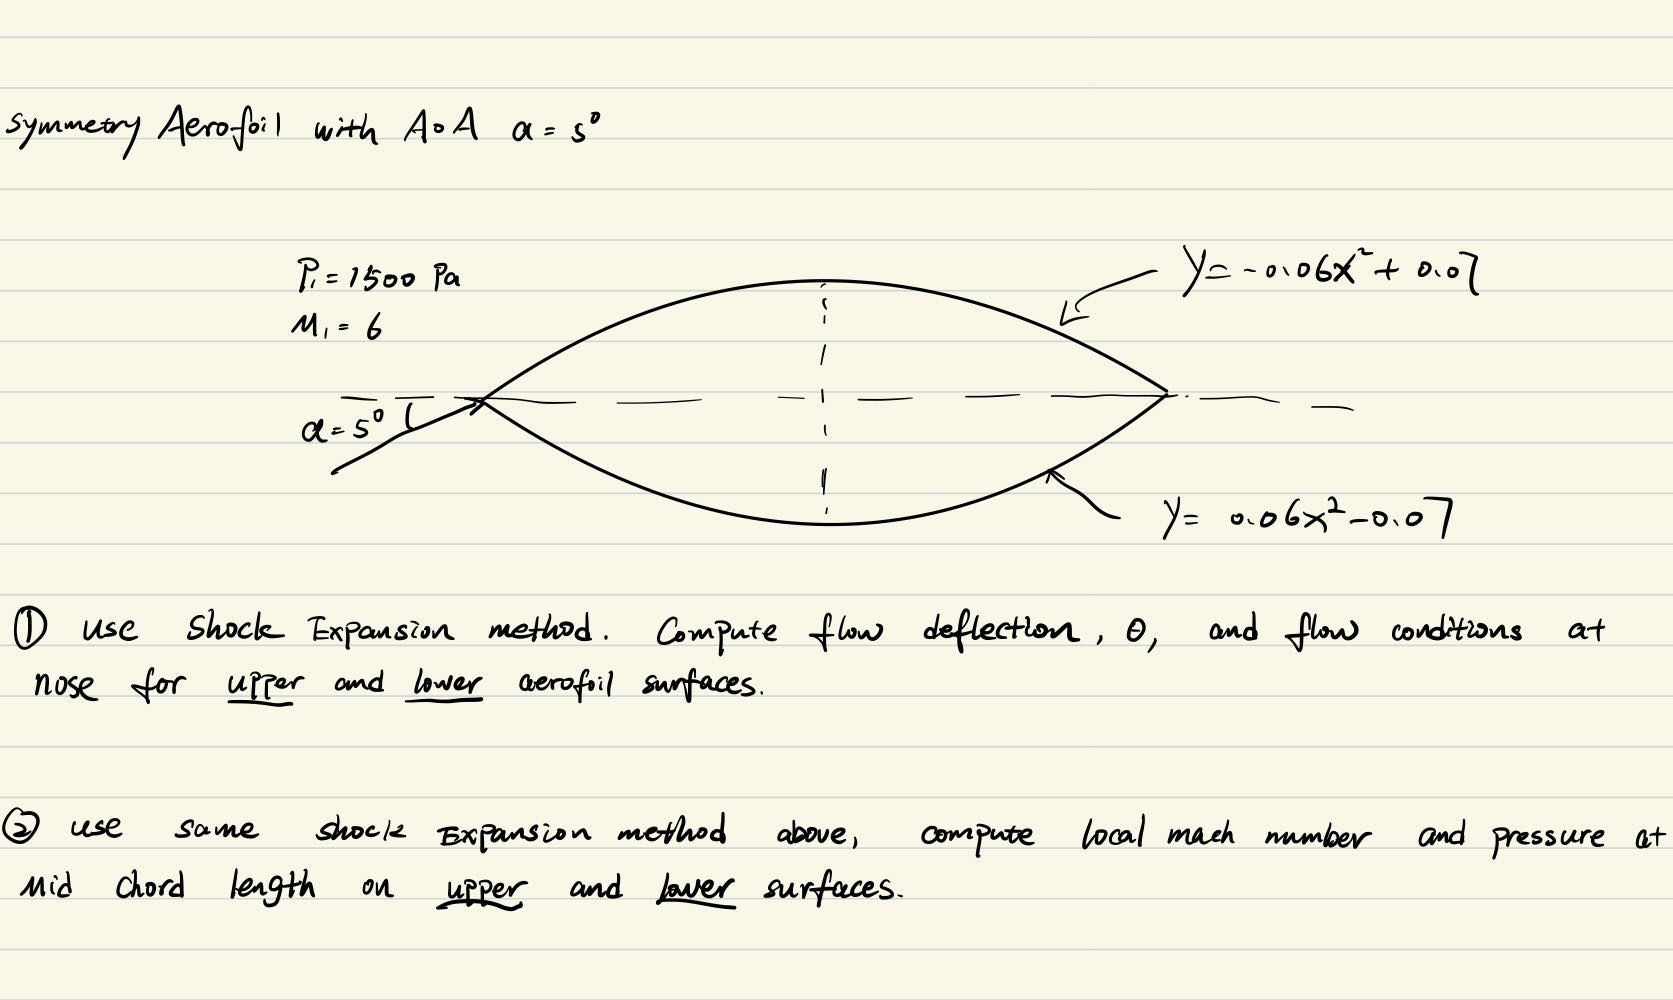 symmetry Aerofoil with AoA α = 5°
P₁ = 1500 Pa
y = -0.06x² + 0.07
M₁ = 6
α = 5°
y = 0.06x² - 0.07
① use Shock Expansion method. Compute flow deflection, θ, and flow conditions at
nose for upper and lower aerofoil surfaces.
② use same shock Expansion method above, compute local mach number and pressure at
Mid chord length on upper and lower surfaces.